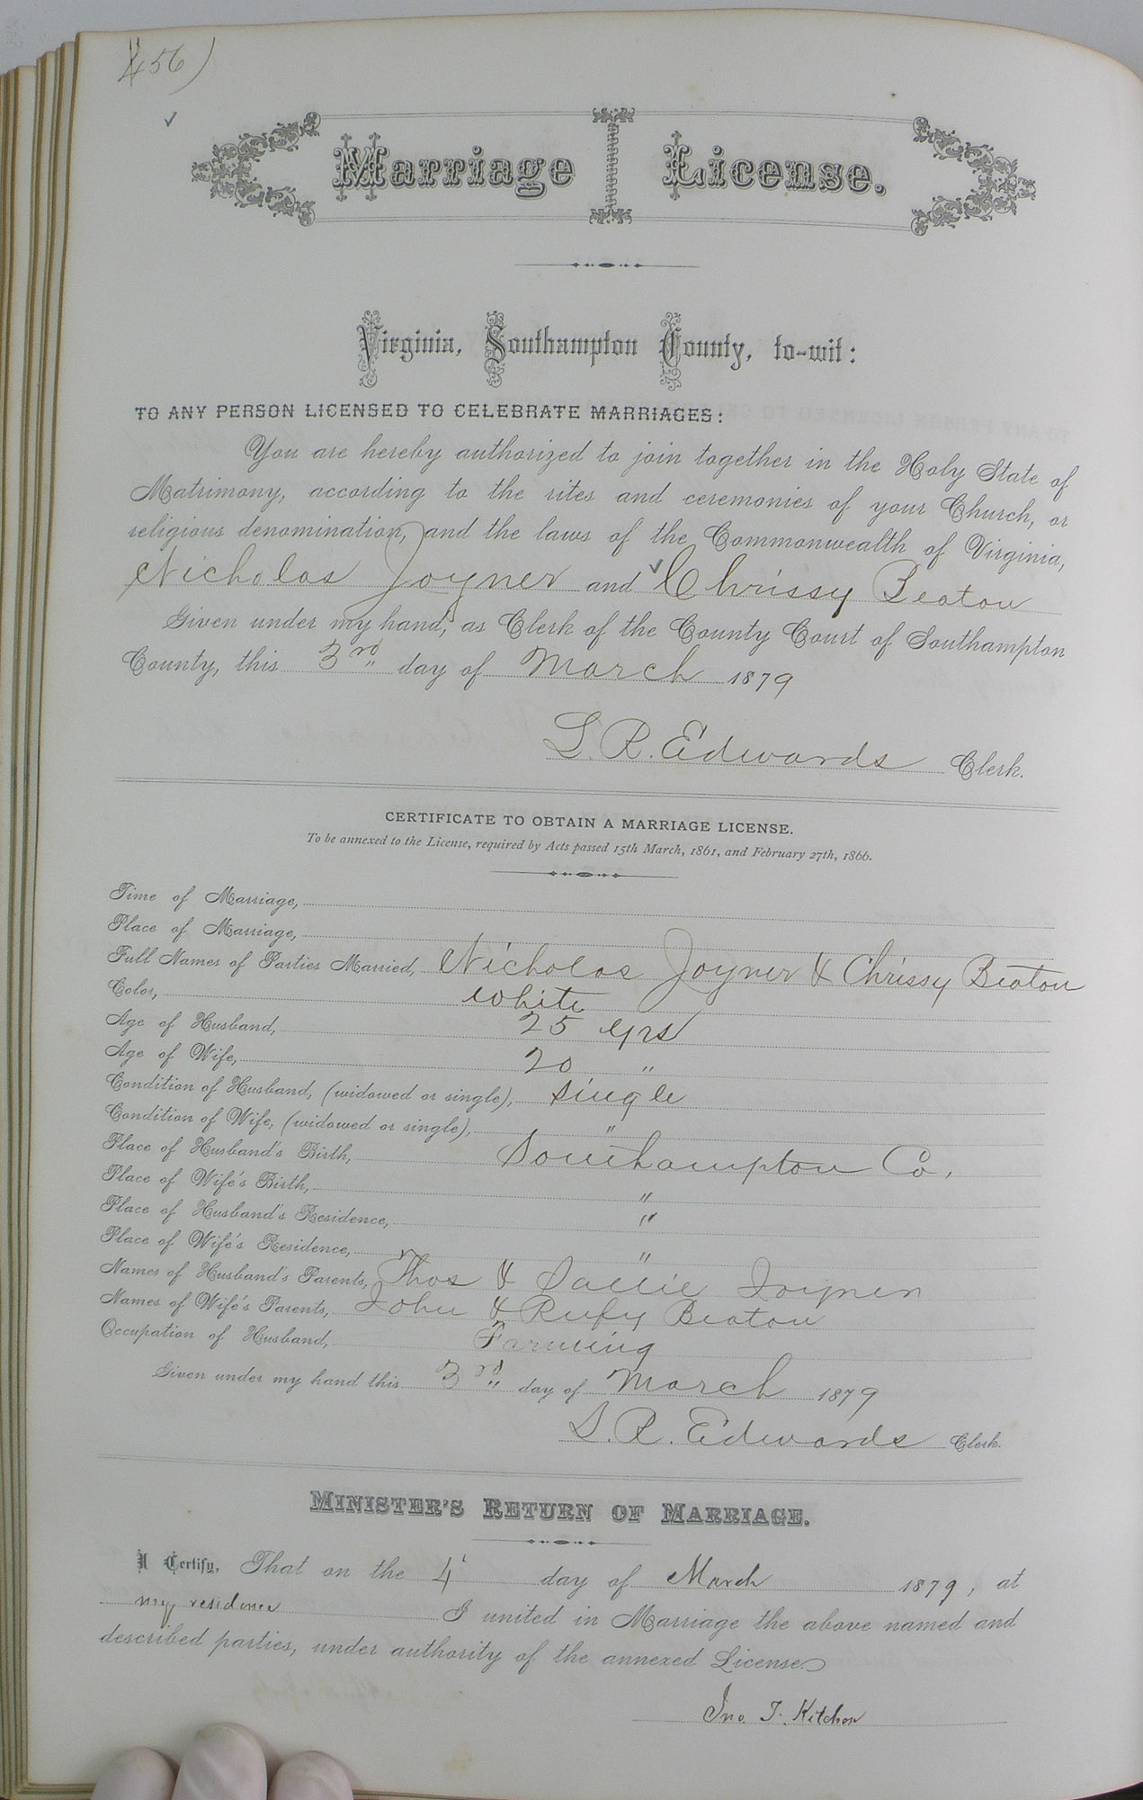 456)
Marriage License.
Virginia, Southampton County, to-wit:
TO ANY PERSON LICENSED TO CELEBRATE MARRIAGES:
You are hereby authorized to join together in the Holy State of
Matrimony, according to the rites and ceremonies of your Church, or
religious denomination, and the laws of the Commonwealth of Virginia,
Nicholas Joyner and Chrissy Beaton
Given under my hand, as Clerk of the County Court of Southampton
County, this 3rd day of March 1879
L. R. Edwards Clerk.
CERTIFICATE TO OBTAIN A MARRIAGE LICENSE.
To be annexed to the License, required by Acts passed 15th March, 1861, and February 27th, 1866.
Time of Marriage,
Place of Marriage,
Full Names of Parties Married, Nicholas Joyner & Chrissy Beaton
Color, White
Age of Husband, 25 yrs
Age of Wife, 20 "
Condition of Husband, (widowed or single), Single
Condition of Wife, (widowed or single), "
Place of Husband's Birth, Southampton Co.
Place of Wife's Birth, "
Place of Husband's Residence, "
Place of Wife's Residence, "
Names of Husband's Parents, Thos & Sallie Joyner
Names of Wife's Parents, John & Rufy Beaton
Occupation of Husband, Farming
Given under my hand this 3rd day of March 1879
L. R. Edwards Clerk.
MINISTER'S RETURN OF MARRIAGE.
I Certify, That on the 4 day of March 1879, at
my residence I united in Marriage the above named and
described parties, under authority of the annexed License.
Jno. T. Kitchen